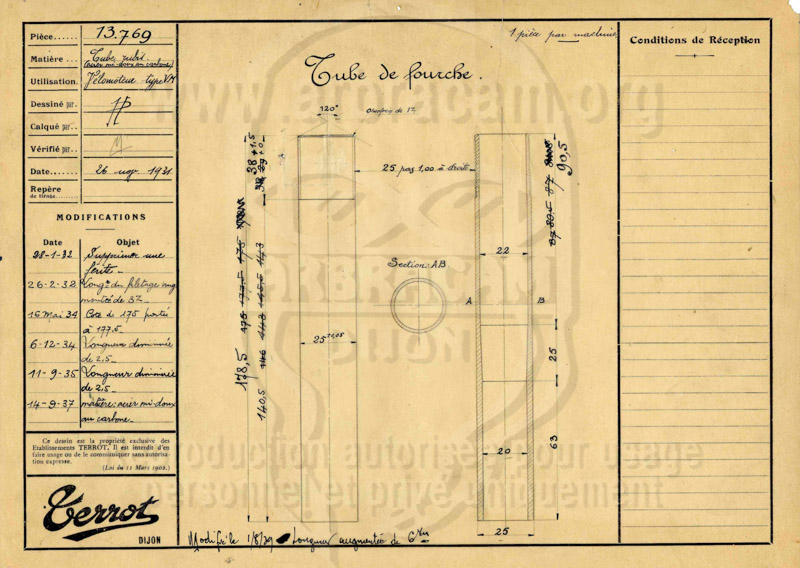 Pièce 13.769
Matière Tube
(acier mi-doux au carbone)
Utilisation Vélomoteur type VM
Dessiné par
Calqué par
Vérifié par
Date 26 1931
Repère
de tirage
MODIFICATIONS
Date Objet
28-1-32 Supprimer une
fente
26-2-32 Long. du filetage
de 3%
16 Mai 34 Cote de 175 portée
à 177.5
6-12-34 Longueur diminuée
de 2,5
11-9-35 Longueur diminuée
de 2,5
14-9-37 matière: acier mi-doux
au carbone
Ce dessin est la propriété exclusive des
Etablissements TERROT. Il est interdit d'en
faire usage ou de le communiquer sans autorisa-
tion expresse.
(Loi du 11 Mars 1902.)
Terrot
DIJON
1 pièce par machine
Tube de fourche.
120°
38 +1,5 +0
25 pas 1,00 à droite
90,5
87
80,5
22
Section: AB
A B
25 +0,05
178,5
175
177,5
175
140,5
146
143
145,5
143
25
63
20
25
Modifié le 1/8/39 Longueur augmentée de 6
Conditions de Réception
www.arbracam.org
ARBRACAM
Reproduction autorisée pour usage
personnel et privé uniquement